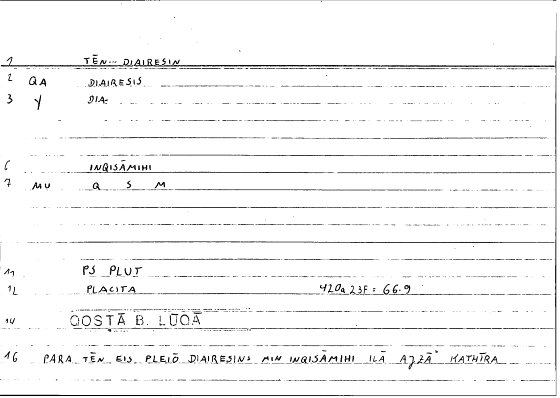 1 TĒN... DIAIRESIN
2 QA DIAIRESIS
3 Y DIA-
6 INQISĀMIHI
7 MU Q S M
11 PS PLUT
12 PLACITA 420a 23F = 66.9
14 QOSṬĀ B. LŪQĀ
16 PARA TĒN EIS PLEIŌ DIAIRESIN: MIN INQISĀMIHI ILĀ AǧZĀʾ KATHĪRA